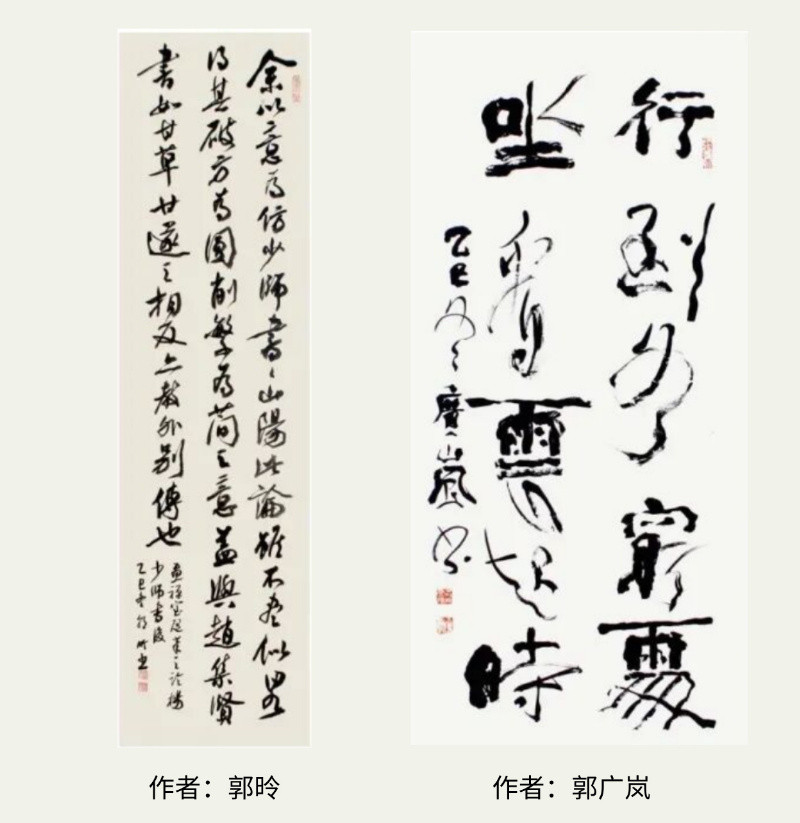 余以意為仿少師書山陽此論雖不盡似略
得其破方為圓削繁為簡之意蓋與趙集賢
書如甘草甘遂之相反亦教外別傳也
畫禪室隨筆之論楊
少師書後
乙巳冬郭昤書
行到水窮處
坐看雲起時
乙巳冬廣嵐書
作者：郭昤
作者：郭广岚